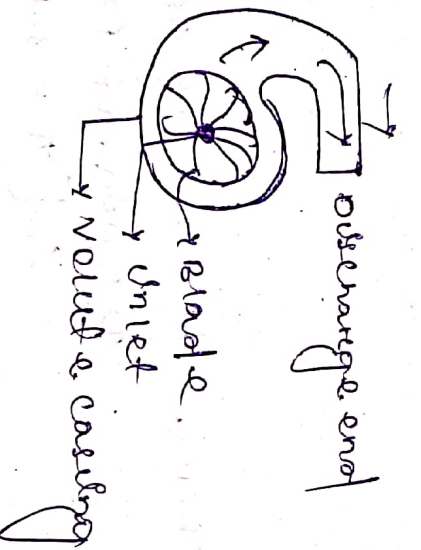 Discharge end
Blade
Inlet
Volute casing